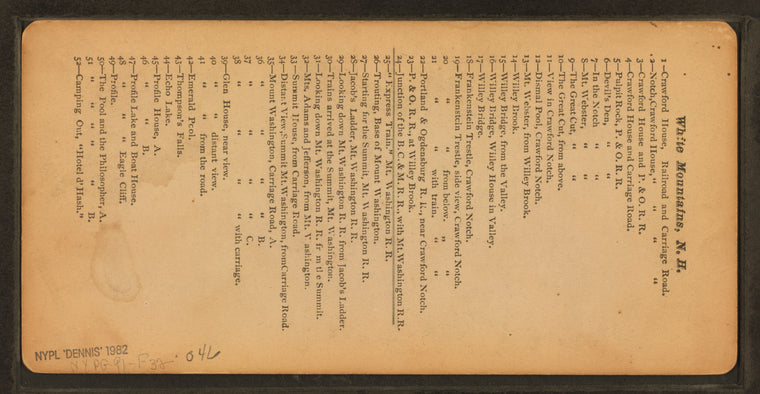 White Mountains, N. H.
1—Crawford House, Railroad and Carriage Road.
2—Notch, Crawford House, " " "
3—Crawford House and P. & O. R. R.
4—Crawford House and Carriage Road.
5—Pulpit Rock, P. & O. R. R.
6—Devil's Den, " "
7—In the Notch " "
8—Mt. Webster, " "
9—The Great Cut, " "
10—The Great Cut, from above.
11—View in Crawford Notch.
12—Dismal Pool, Crawford Notch.
13—Mt. Webster, from Willey Brook.
14—Willey Brook.
15—Willey Bridge, from the Valley.
16—Willey Bridge, Willey House in Valley.
17—Willey Bridge.
18—Frankenstein Trestle, Crawford Notch.
19—Frankenstein Trestle, side view, Crawford Notch.
20 " " from below, " "
21 " " with train. " "
22—Portland & Ogdensburg R. R., near Crawford Notch.
23—P. & O. R. R., at Willey Brook.
24—Junction of the B. C. & M. R. R., with Mt. Washington R. R.
25—"Express Train." Mt. Washington R. R.
26—Routing, Base of Mount Washington.
27—Starting for the Summit, Mt. Washington R. R.
28—Jacob's Ladder, Mt. Washington R. R.
29—Looking down Mt. Washington R. R. from Jacob's Ladder.
30—Trains arrived at the Summit, Mt. Washington.
31—Looking down Mt. Washington R. R. from the Summit.
32—Mts. Adams and Jefferson, from Mt. Washington.
33—Summit House, from Carriage Road.
34—Distant View, Summit Mt. Washington, from Carriage Road.
35—Mount Washington, Carriage Road, A.
36 " " " " B.
37 " " " " C.
38 " " " " with carriage.
39—Glen House, near view.
40 " " distant view.
41 " " from the road.
42—Emerald Pool.
43—Thompson's Falls.
44—Echo Lake.
45—Profile House, A.
46 " " B.
47—Profile Lake and Boat House.
48 " " " Eagle Cliff.
49—Profile.
50—The Pool and the Philosopher, A.
51 " " " " B.
52—Camping Out, "Hotel d'Hash."
NYPL 'DENNIS' 1982